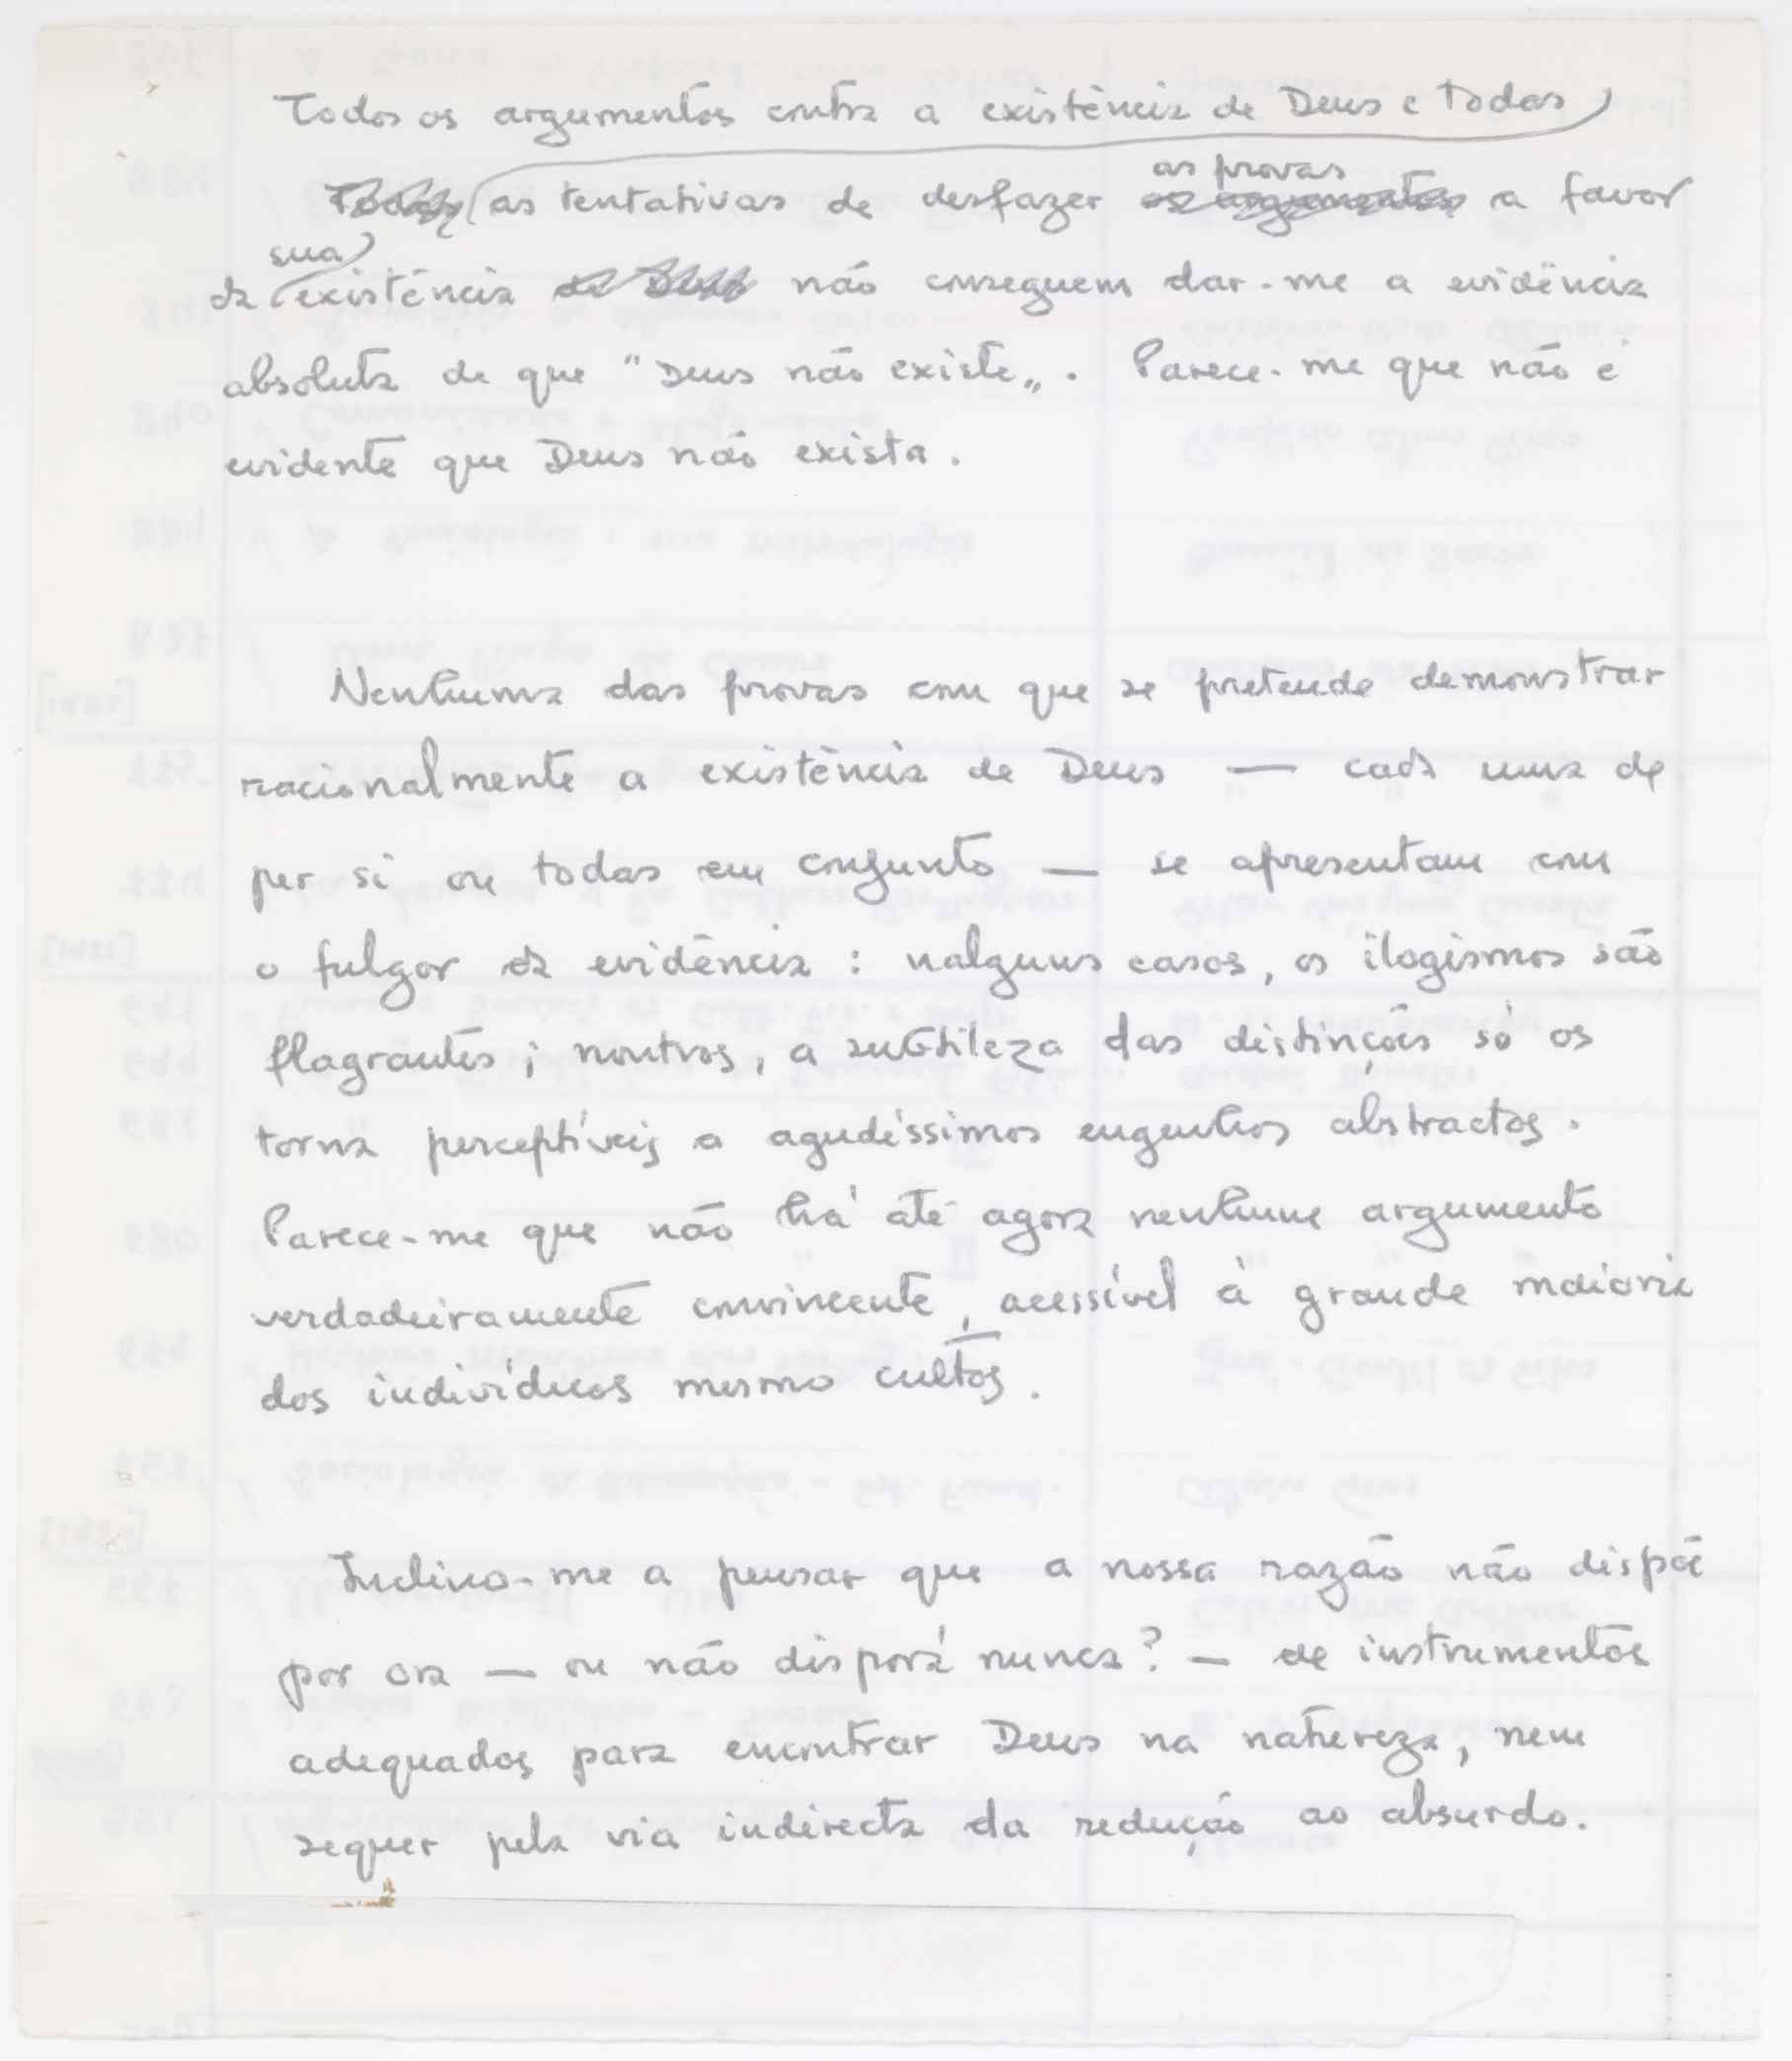 Todos os argumentos contra a existência de Deus e todas
as provas
Todas as tentativas de desfazer os argumentos a favor
sua
da existência de Deus não conseguem dar-me a evidência
absoluta de que "Deus não existe„. Parece-me que não é
evidente que Deus não exista.
Nenhuma das provas com que se pretende demonstrar
racionalmente a existência de Deus — cada uma de
per si ou todas em conjunto — se apresentam com
o fulgor da evidência: nalguns casos, os ilogismos são
flagrantes; noutros, a subtileza das distinções só os
torna perceptíveis a agudéssimos engenhos abstractos.
Parece-me que não há até agora nenhum argumento
verdadeiramente convincente, acessível à grande maioria
dos indivíduos mesmo cultos.
Inclino-me a pensar que a nossa razão não dispõe
por ora — ou não disporá nunca? — de instrumentos
adequados para encontrar Deus na natureza, nem
sequer pela via indirecta da redução ao absurdo.